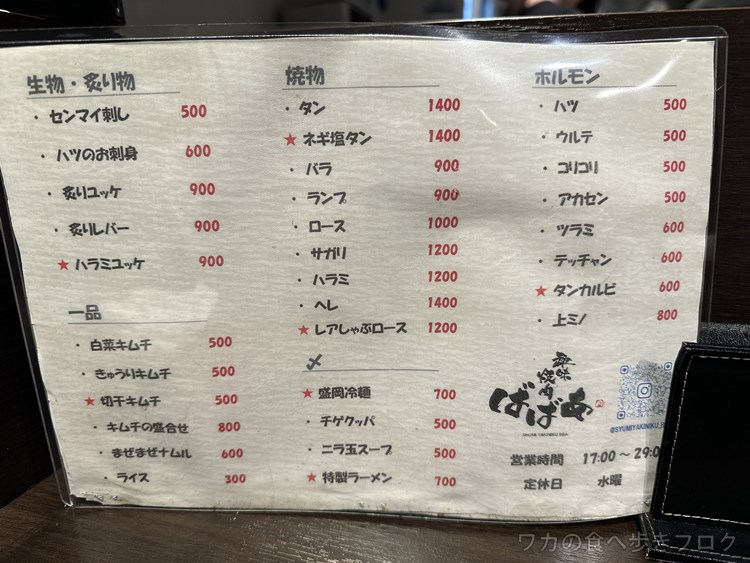 生物・炙り物
・ センマイ刺し 500
・ ハツのお刺身 600
・ 炙りユッケ 900
・ 炙りレバー 900
★ ハラミユッケ 900
一品
・ 白菜キムチ 500
・ きゅうりキムチ 500
★ 切干キムチ 500
・ キムチの盛合せ 800
・ まぜまぜナムル 600
・ ライス 300
焼物
・ タン 1400
★ ネギ塩タン 1400
・ バラ 900
・ ランプ 900
・ ロース 1000
・ サガリ 1200
・ ハラミ 1200
・ ヘレ 1400
★ レアしゃぶロース 1200
〆
★ 盛岡冷麺 700
・ チゲクッパ 500
・ ニラ玉スープ 500
★ 特製ラーメン 700
ホルモン
・ ハツ 500
・ ウルテ 500
・ コリコリ 500
・ アカセン 500
・ ツラミ 600
・ テッチャン 600
★ タンカルビ 600
・ 上ミノ 800
焼肉
ばばあ
営業時間 17:00〜29:0
定休日 水曜
ワカの食べ歩きブログ